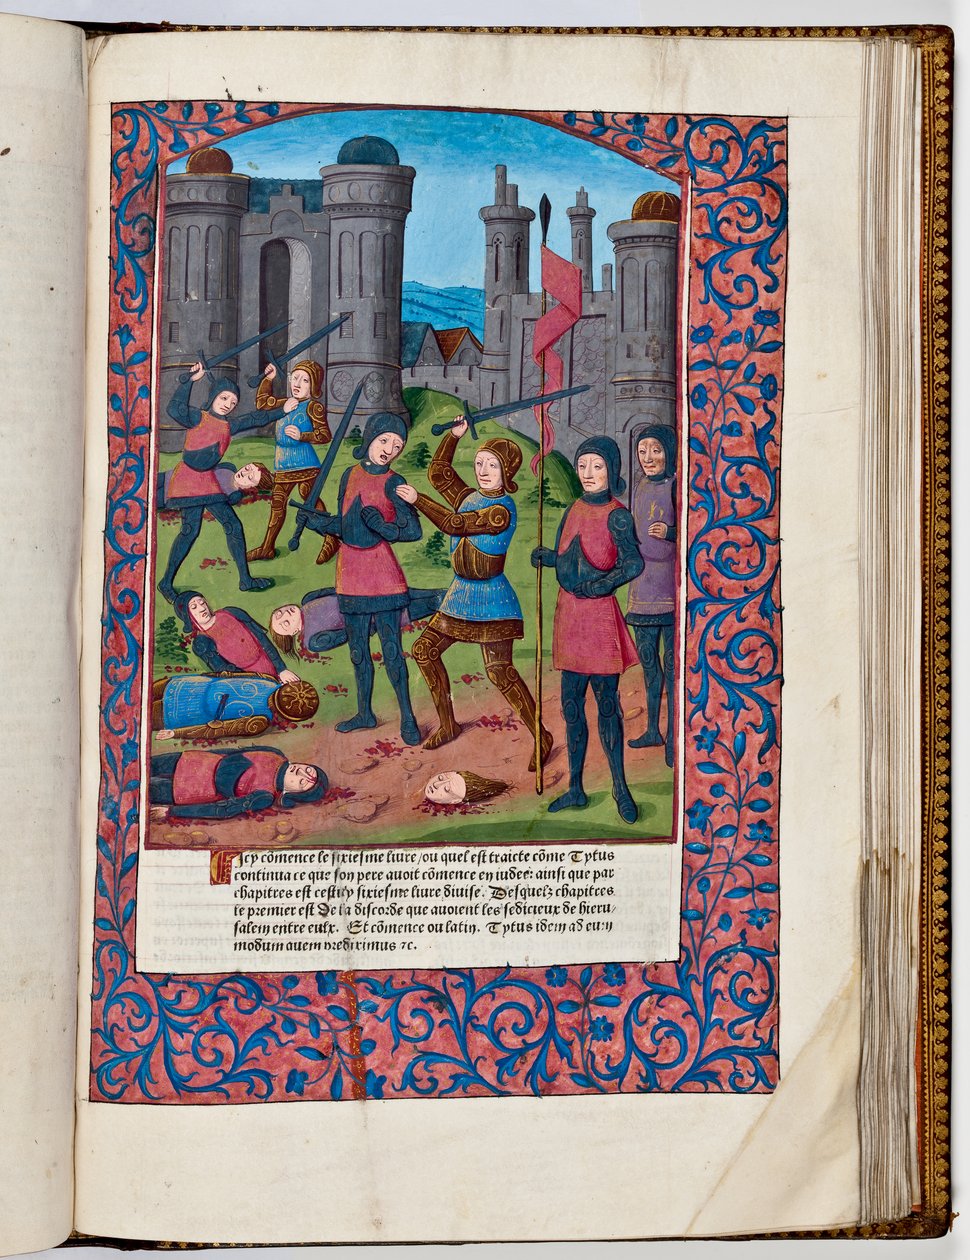 Icy cõmence le sixiesme liure/ou quel est traicte cõme Tytus
continua ce que son pere auoit cõmence en iudee: ainsi que par
chapitres est cestuy sixiesme liure diuise. Desquelz chapitres
le premier est De la discorde que auoient les sedicieux de hieru/
salem entre eulx. Et cõmence ou latin. Tytus idem ad eum
modum auem prediximus ⁊c.